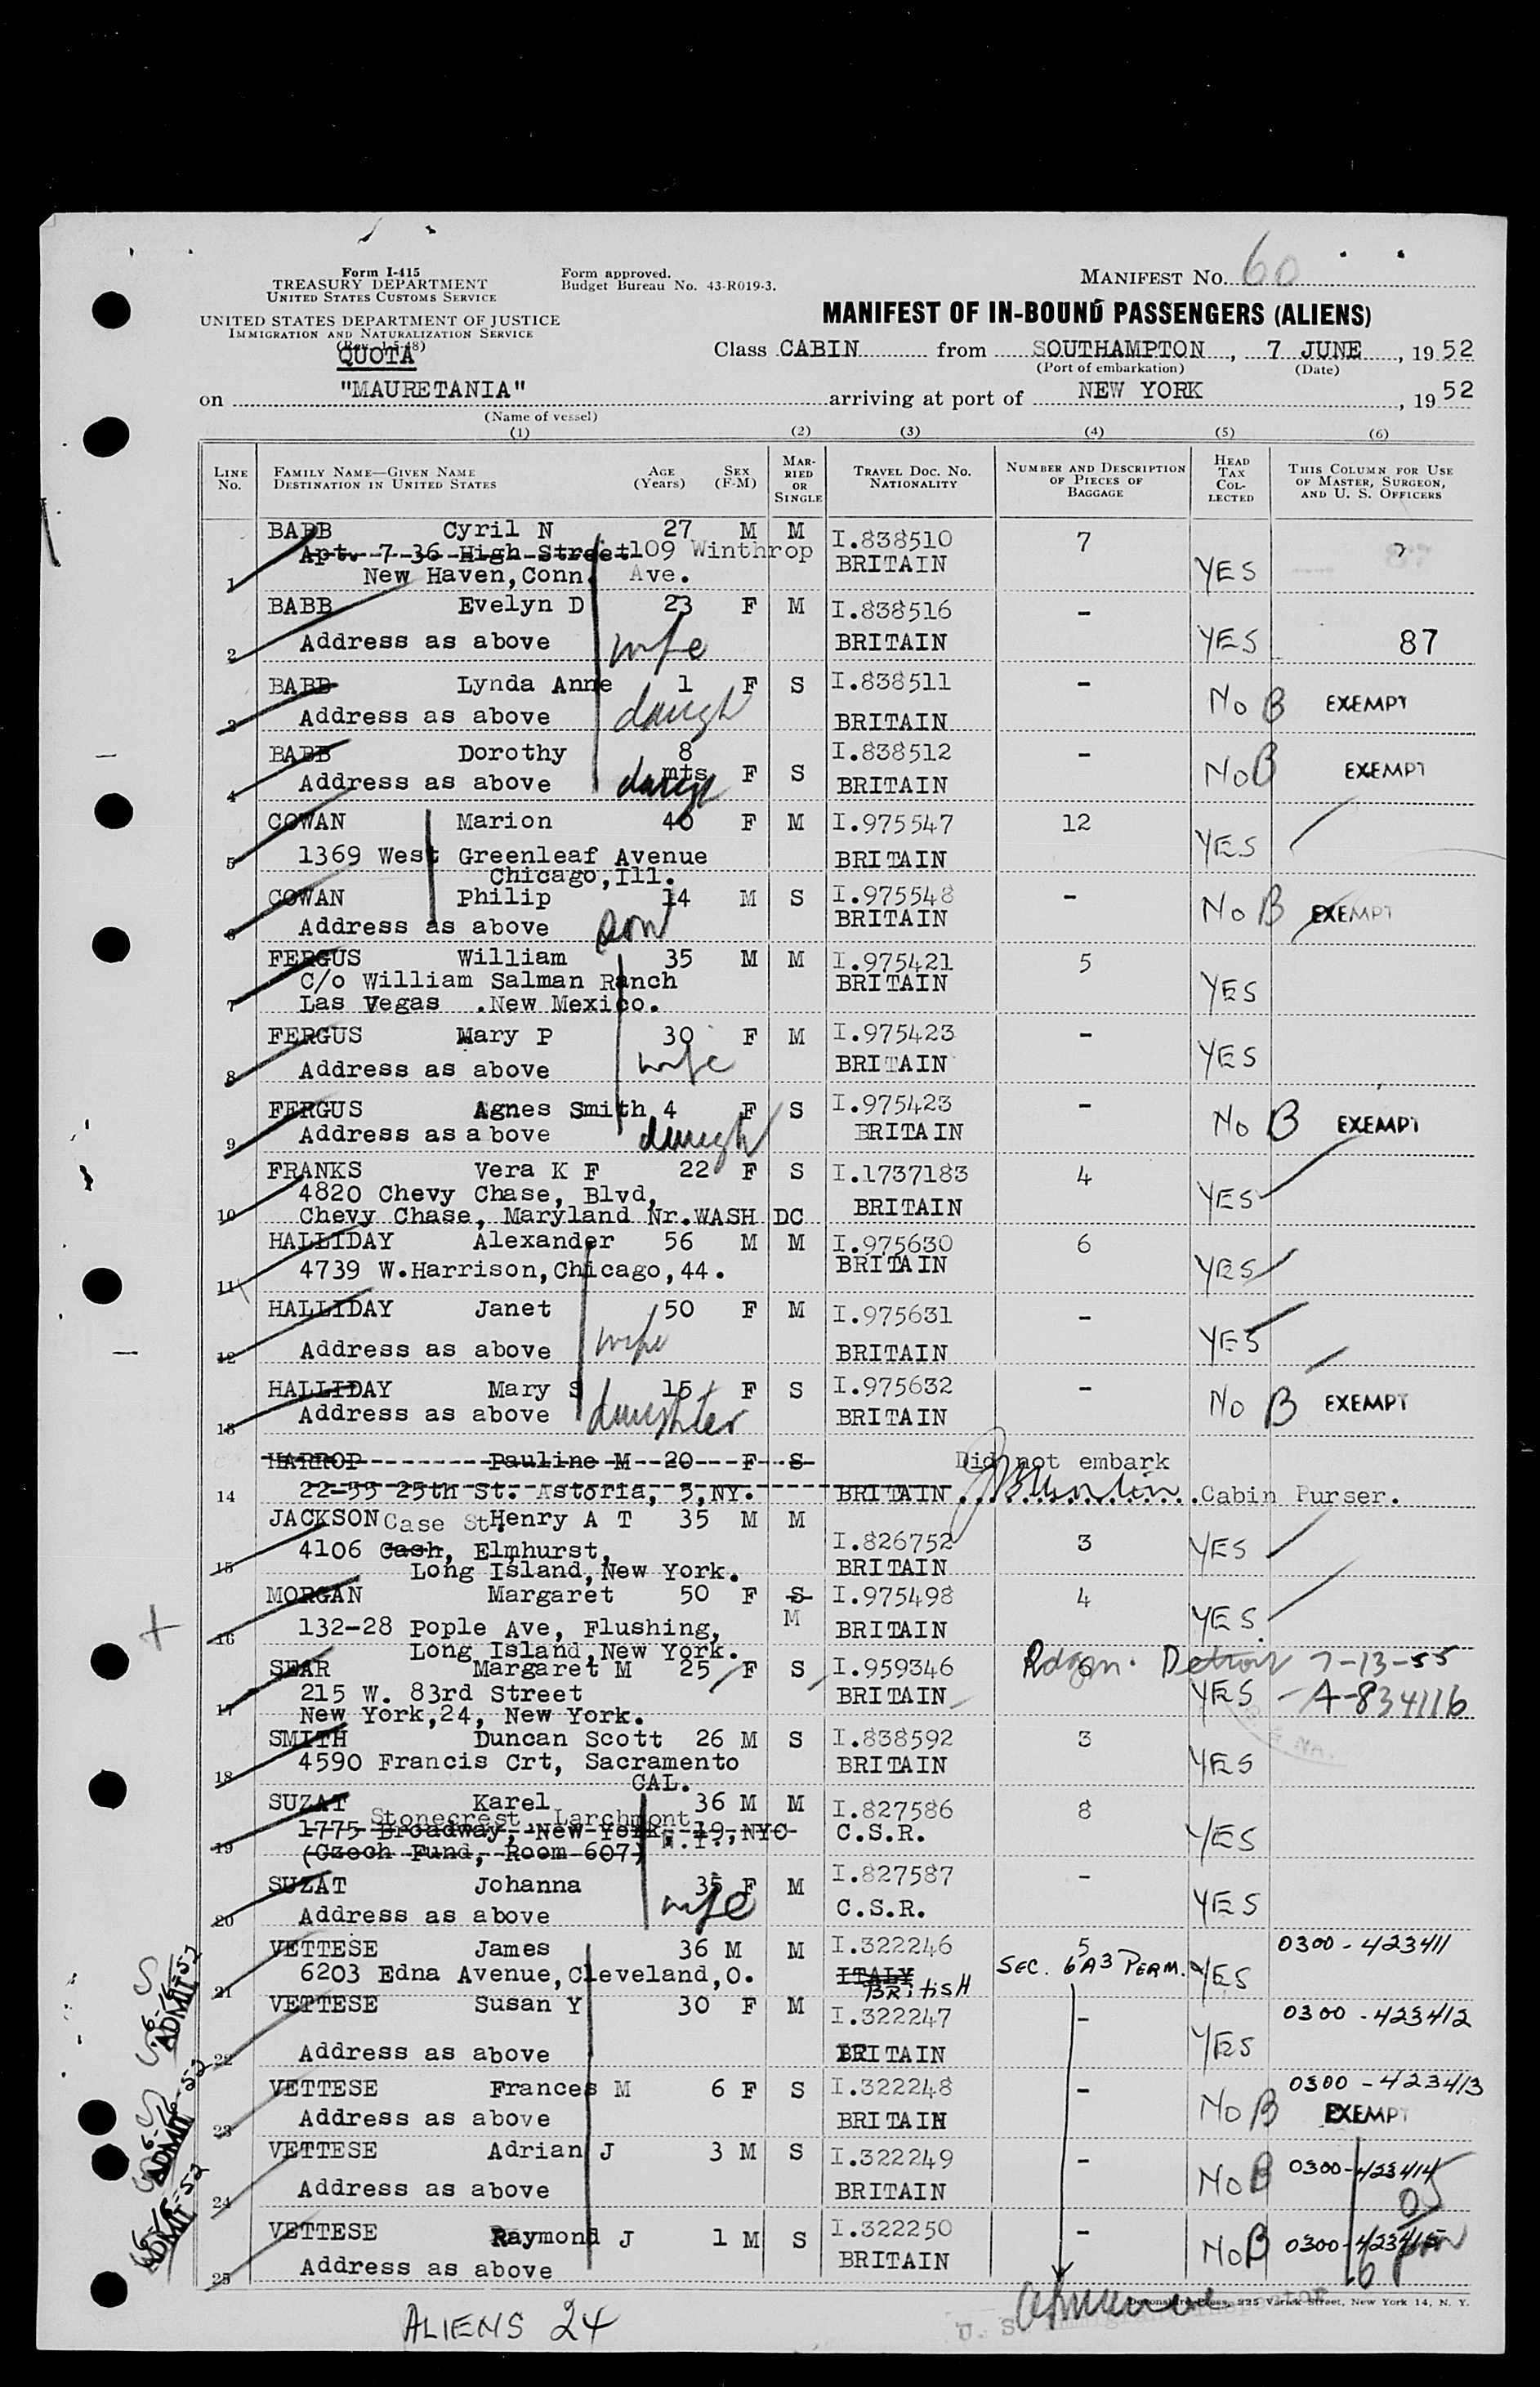 Form I-415
TREASURY DEPARTMENT
UNITED STATES CUSTOMS SERVICE
UNITED STATES DEPARTMENT OF JUSTICE
IMMIGRATION AND NATURALIZATION SERVICE
(Rev. 1-5-48)
Form approved.
Budget Bureau No. 43-R019-3.
MANIFEST NO. 60
MANIFEST OF IN-BOUND PASSENGERS (ALIENS)
QUOTA
Class CABIN from SOUTHAMPTON, 7 JUNE, 1952
(Port of embarkation) (Date)
on "MAURETANIA" arriving at port of NEW YORK, 1952
(Name of vessel)
(1) (2) (3) (4) (5) (6)
LINE No. FAMILY NAME—GIVEN NAME DESTINATION IN UNITED STATES AGE (Years) SEX (F-M) MARRIED OR SINGLE TRAVEL DOC. NO. NATIONALITY NUMBER AND DESCRIPTION OF PIECES OF BAGGAGE HEAD TAX COLLECTED THIS COLUMN FOR USE OF MASTER, SURGEON, AND U. S. OFFICERS
1 BABB Cyril N 27 M M I.838510 7
Apt. 7 36 High Street 109 Winthrop BRITAIN YES
New Haven, Conn. Ave.
2 BABB Evelyn D 23 F M I.838516 -
Address as above wife BRITAIN YES 87
3 BABB Lynda Anne 1 F S I.838511 -
Address as above daugh BRITAIN No B EXEMPT
4 BABB Dorothy 8 mts F S I.838512 -
Address as above daugh BRITAIN No B EXEMPT
5 COWAN Marion 40 F M I.975547 12
1369 West Greenleaf Avenue BRITAIN YES
Chicago, Ill.
6 COWAN Philip 14 M S I.975548 -
Address as above son BRITAIN No B EXEMPT
7 FERGUS William 35 M M I.975421 5
C/o William Salman Ranch BRITAIN YES
Las Vegas .New Mexico.
8 FERGUS Mary P 30 F M I.975423 -
Address as above wife BRITAIN YES
9 FERGUS Agnes Smith 4 F S I.975423 -
Address as above daugh BRITAIN No B EXEMPT
10 FRANKS Vera K F 22 F S I.1737183 4
4820 Chevy Chase, Blvd, BRITAIN YES
Chevy Chase, Maryland Nr.WASH DC
11 HALLIDAY Alexander 56 M M I.975630 6
4739 W.Harrison, Chicago, 44. BRITAIN YES
12 HALLIDAY Janet 50 F M I.975631 -
Address as above wife BRITAIN YES
13 HALLIDAY Mary S 15 F S I.975632 -
Address as above daughter BRITAIN No B EXEMPT
14 HARROP Pauline M 20 F S Did not embark
22-55 25th St. Astoria, 5, NY. BRITAIN Cabin Purser.
15 JACKSON Case St. Henry A T 35 M M I.826752 3
4106 Cash, Elmhurst, BRITAIN YES
Long Island, New York.
16 MORGAN Margaret 50 F S M I.975498 4
132-28 Pople Ave, Flushing, BRITAIN YES.
Long Island, New York.
17 SEAR Margaret M 25 F S I.959346 Detroit 7-13-55
215 W. 83rd Street BRITAIN YES A-834116
New York, 24, New York.
18 SMITH Duncan Scott 26 M S I.838592 3
4590 Francis Crt, Sacramento BRITAIN YES
CAL.
19 SUZAT Karel 36 M M I.827586 8
Stonecrest, Larchmont
1775 Broadway, New York, 19, NYC C.S.R. YES
(Czech Fund, Room 607)
20 SUZAT Johanna 35 F M I.827587 -
Address as above wife C.S.R. YES
21 VETTESE James 36 M M I.322246 5 0300-423411
6203 Edna Avenue, Cleveland, O. ITALY BRITISH SEC. 6A3 PERM. YES
22 VETTESE Susan Y 30 F M I.322247 - 0300-423412
Address as above BRITAIN YES
23 VETTESE Frances M 6 F S I.322248 - 0300-423413
Address as above BRITAIN No B EXEMPT
24 VETTESE Adrian J 3 M S I.322249 - 0300-423414
Address as above BRITAIN No B
25 VETTESE Raymond J 1 M S I.322250 - 0300-423415
Address as above BRITAIN No B
ADMIT
ADMIT
ADMIT
Devonshire Press, 225 Varick Street, New York 14, N. Y.
ALIENS 24